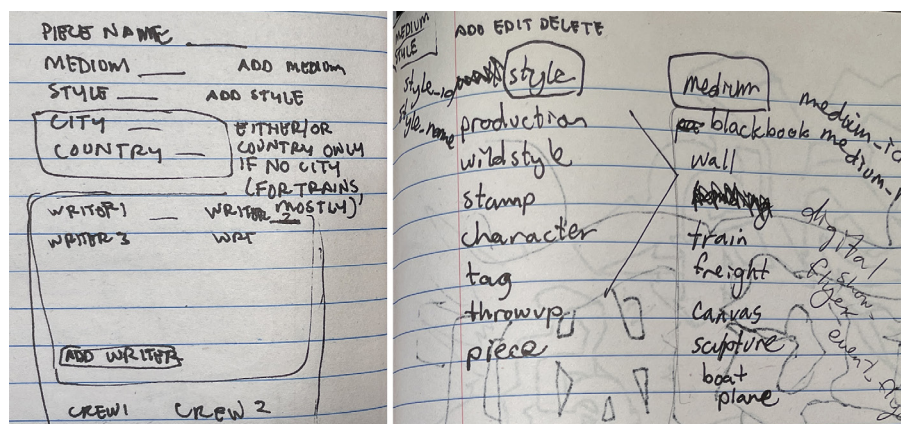 PIECE NAME
MEDIUM ADD MEDIUM
STYLE ADD STYLE
CITY EITHER/OR
COUNTRY COUNTRY ONLY
IF NO CITY
(FOR TRAINS
MOSTLY)
WRITER1 WRITER 2
WRITER 3 WRT
ADD WRITER
CREW1 CREW 2
MEDIUM
STYLE
ADD EDIT DELETE
style_id
style_name
style
production
wildstyle
stamp
character
tag
throwup
piece
medium
blackbook
wall
train
freight
canvas
scupture
boat
plane
medium_id
digital
show
flyer
event